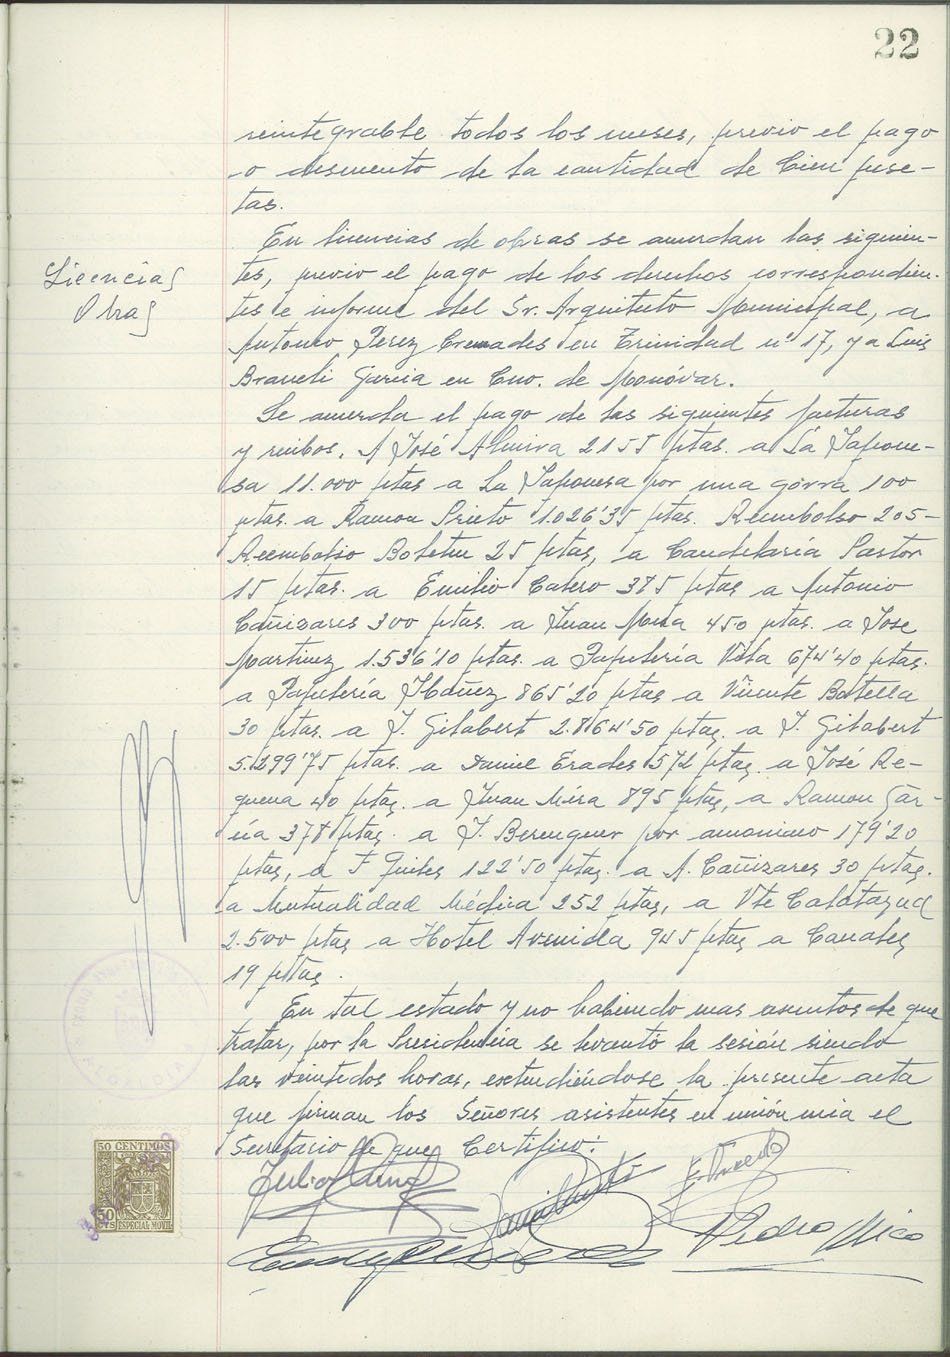 22
reintegrable todos los meses, previo el pago
o descuento de la cantidad de Cien pese-
tas.
Licencias
Obras
En licencias de obras se acuerdan las siguien-
tes, previo el pago de los derechos correspondien-
tes e informe del Sr. Arquitecto Municipal, a
Antonio Perez Cremades en Trinidad nº 17, y a Luis
Braceli Garcia en Cno. de Monóvar.
Se acuerda el pago de las siguientes facturas
y recibos. A José Almira 2155 ptas. a La Japone-
sa 11.000 ptas a La Japonesa por una gorra 100
ptas. a Ramon Prieto 1.026'35 ptas. Reembolso 205-
Reembolso Boletin 25 ptas, a Candelaria Pastor
15 ptas. a Emilio Catero 375 ptas a Antonio
Cañizares 300 ptas. a Juan Mira 450 ptas. a Jose
Martinez 1.536'10 ptas. a Papeteria Vida 674'40 ptas.
a Papeteria Ibañez 865'20 ptas a Vicente Botella
30 ptas. a J. Gilabert 2.864'50 ptas. a J. Gilabert
5.299'75 ptas. a Daniel Erades 572 ptas. a José Re-
quena 40 ptas. a Juan Mira 895 ptas, a Ramon Gar-
cia 378 ptas. a J. Berenguer por amoniaco 179'20
ptas, a F 122'50 ptas. a A. Cañizares 30 ptas.
a Mutualidad Médica 252 ptas, a Vte Calatayud
2.500 ptas a Hotel Avenida 945 ptas a Canales
19 ptas.
En tal estado y no habiendo mas asuntos de que
tratar, por la Presidencia se levantó la sesión siendo
las veintidos horas, extendiéndose la presente acta
que firman los Señores asistentes en unión mia el
Secretario de que Certifico:
ALCALDIA
50 CENTIMOS
50
CTS ESPECIAL MOVIL
Pedro Mico